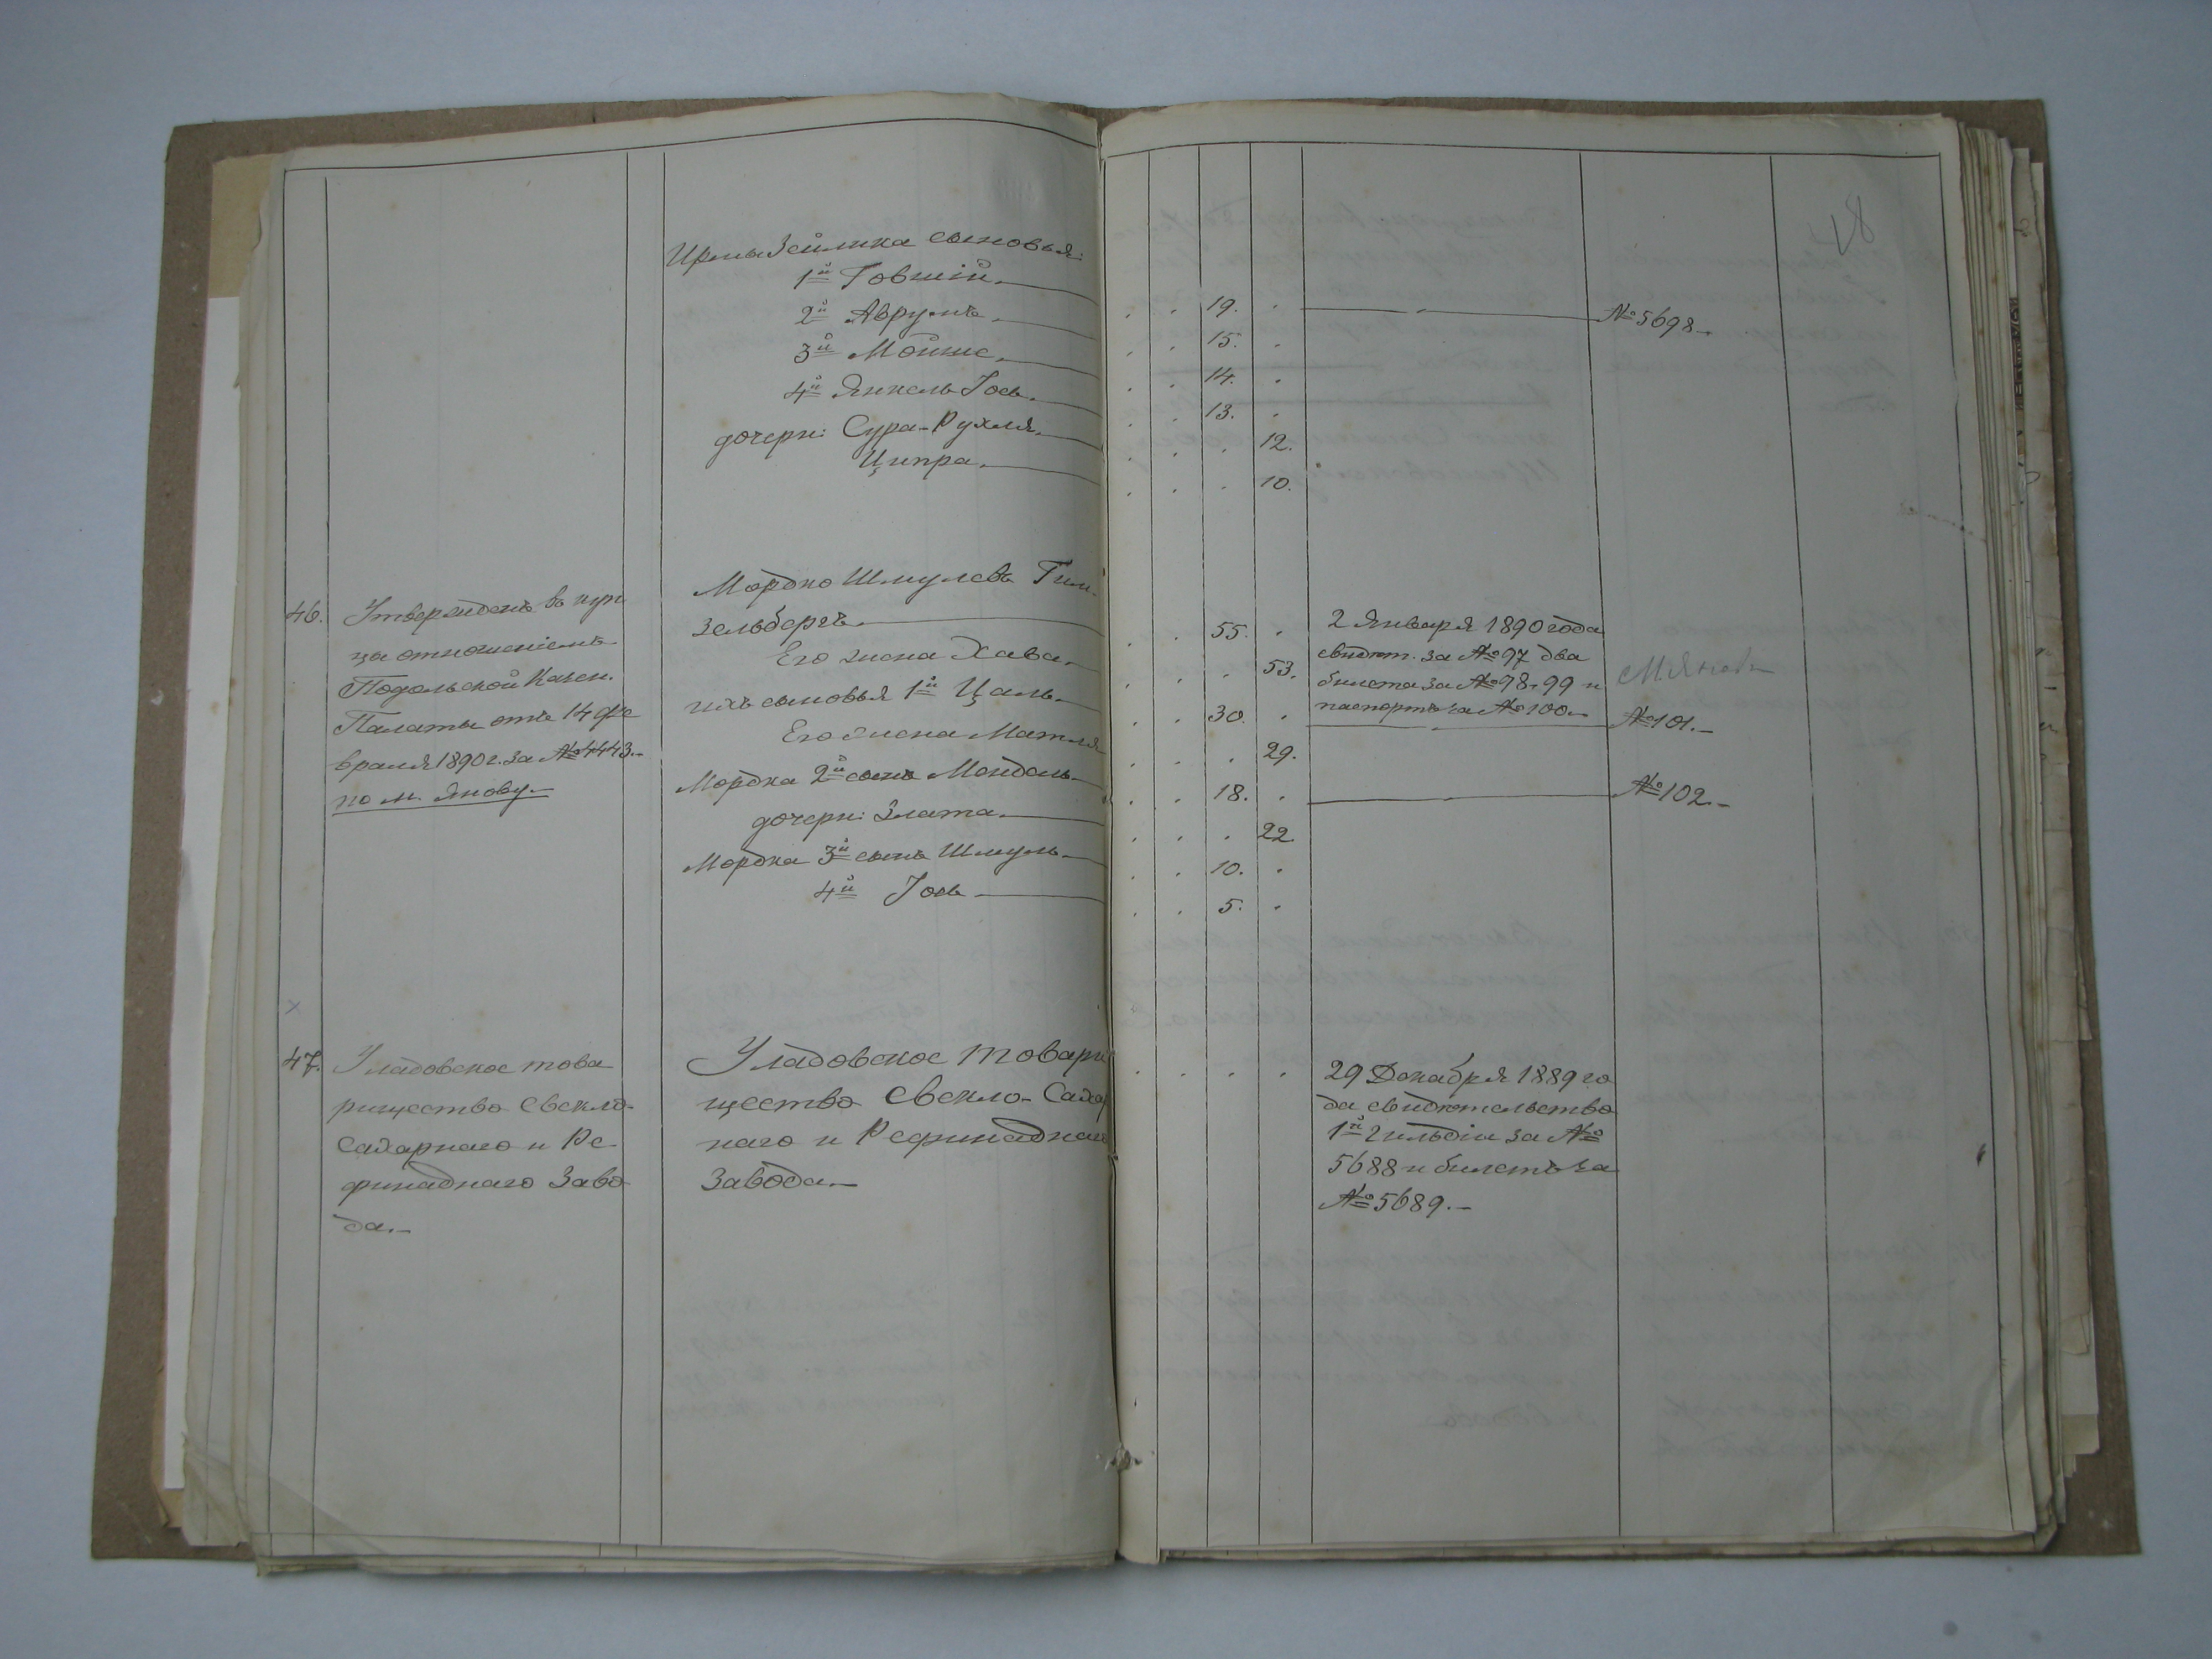 18
Ирмы Зейлика сыновья:
1й Говшій
2й Аврумъ
3й Мойше
4й Янкель Іось
дочери: Сура-Рухля
Ципра
19.
15.
14.
13.
12.
10.
№ 5698
46.
Утвержденъ въ куп
ца отношеніемъ
Подольской Казен.
Палаты отъ 14 фе
враля 1890 г. за № 4443.
по м. Янову.
Мордко Шмулевъ Гин-
зельбергъ
Его жена Хава
ихъ сыновья 1й Цаль
Его жена Матля
Мордка 2й сынъ Мендель
дочери: Злата
Мордка 3й сынъ Шмуль
4й Іось
55.
53.
30.
29.
18.
22
10.
5.
2 Января 1890 года
свидѣт. за № 97 два
билета за № 98, 99 и
паспортъ за № 100
М. Яновъ
№ 101.
№ 102.
47.
Уладовское това
рищество Свекло-
Сахарнаго и Ре-
финаднаго Заво
да.
Уладовское товари
щество Свекло-Сахар
наго и Рефинаднаго
Завода.
29 Декабря 1889 го
да свидѣтельство
1й гильдіи за №
5688 и билетъ за
№ 5689.